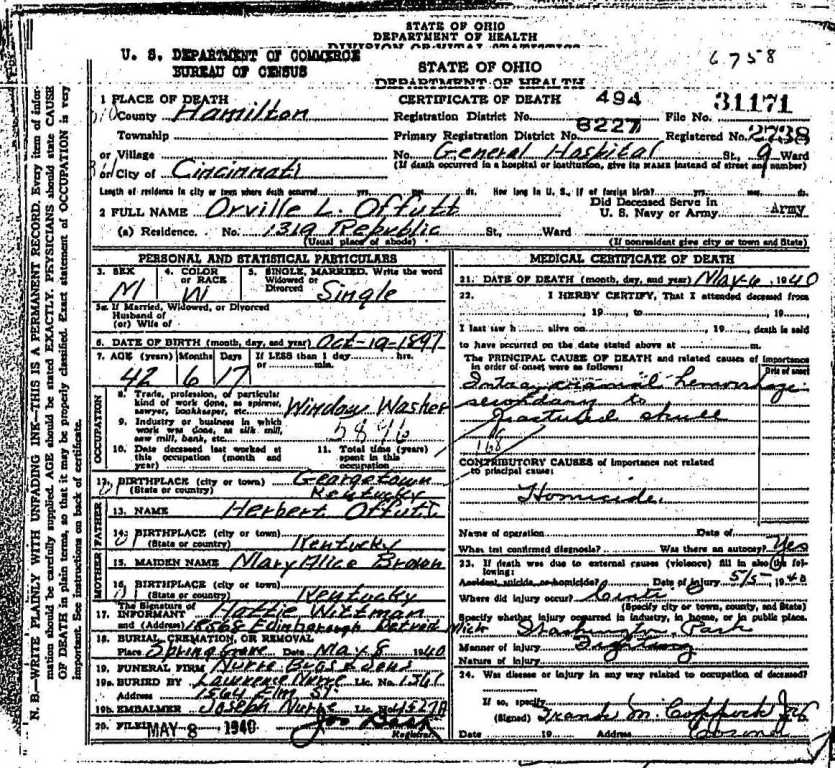 STATE OF OHIO
DEPARTMENT OF HEALTH
DIVISION OF VITAL STATISTICS
U. S. DEPARTMENT OF COMMERCE
BUREAU OF CENSUS
STATE OF OHIO
DEPARTMENT OF HEALTH
6758
1 PLACE OF DEATH
County Hamilton
CERTIFICATE OF DEATH
Registration District No. 494 File No. 31171
Township
Primary Registration District No. 8227 Registered No. 2738
or Village
No. General Hospital St., 9 Ward
or City of Cincinnati
(If death occurred in a hospital or institution, give its NAME instead of street and number)
Length of residence in city or town where death occurred yrs. mos. ds. How long in U. S., if of foreign birth? yrs. mos. ds.
2 FULL NAME Orville L. Offutt
Did Deceased Serve in U. S. Navy or Army Army
(a) Residence. No. 1319 Republic St., Ward
(Usual place of abode) (If nonresident give city or town and State)
PERSONAL AND STATISTICAL PARTICULARS
3. SEX M
4. COLOR or RACE W
5. SINGLE, MARRIED, Widowed or Divorced Write the word Single
5a. If Married, Widowed, or Divorced
Husband of
(or) Wife of
6. DATE OF BIRTH (month, day, and year) Oct-19-1897
7. AGE (years) Months Days If LESS than 1 day hrs. or min.
42 6 17
OCCUPATION
8. Trade, profession, or particular kind of work done, as spinner, sawyer, bookkeeper, etc. Window Washer
9. Industry or business in which work was done, as silk mill, saw mill, bank, etc. 5896
10. Date deceased last worked at this occupation (month and year)
11. Total time (years) spent in this occupation
12. BIRTHPLACE (city or town) Georgetown
(State or country) Kentucky
FATHER
13. NAME Herbert Offutt
14. BIRTHPLACE (city or town)
(State or country) Kentucky
MOTHER
15. MAIDEN NAME Mary Alice Brown
16. BIRTHPLACE (city or town)
(State or country) Kentucky
The Signature of
17. INFORMANT Hattie Wittman
and (Address) Edinborough Detroit Mich
18. BURIAL, CREMATION, OR REMOVAL
Place Spring Grove Date May 8 1940
19. FUNERAL FIRM Nurre Bros & Sons
19a. BURIED BY Lawrence Nurre Lic. No.
Address Elm St.
19b. EMBALMER Joseph Nurre Lic. No. 4527A
20. FILED MAY 8 1940
Registrar
MEDICAL CERTIFICATE OF DEATH
21. DATE OF DEATH (month, day, and year) May-6, 1940
22. I HERBY CERTIFY, That I attended deceased from
, 19 to , 19
I last saw h alive on , 19 , death is said
to have occurred on the date stated above at m.
The PRINCIPAL CAUSE OF DEATH and related causes of importance
in order of onset were as follows: Date of onset
Intracranial hemorrhage
secondary to
fractured skull
168
CONTRIBUTORY CAUSES of importance not related
to principal cause:
Homicide.
Name of operation Date of
What test confirmed diagnosis? Was there an autopsy? Yes
23. If death was due to external causes (violence) fill in also the following:
Accident, suicide, or homicide? Date of injury 5/5- 1940
Where did injury occur? Cinti. O
(Specify city or town, county, and State)
Specify whether injury occurred in industry, in home, or in public place.
Park
Manner of injury Fighting
Nature of injury
24. Was disease or injury in any way related to occupation of deceased?
If so, specify
(Signed) Frank M. Coppock Jr
Date 19 Address Coroner
N. B.—WRITE PLAINLY WITH UNFADING INK—THIS IS A PERMANENT RECORD. Every item of information should be carefully supplied. AGE should be stated EXACTLY. PHYSICIANS should state CAUSE OF DEATH in plain terms, so that it may be properly classified. Exact statement of OCCUPATION is very important. See instructions on back of certificate.